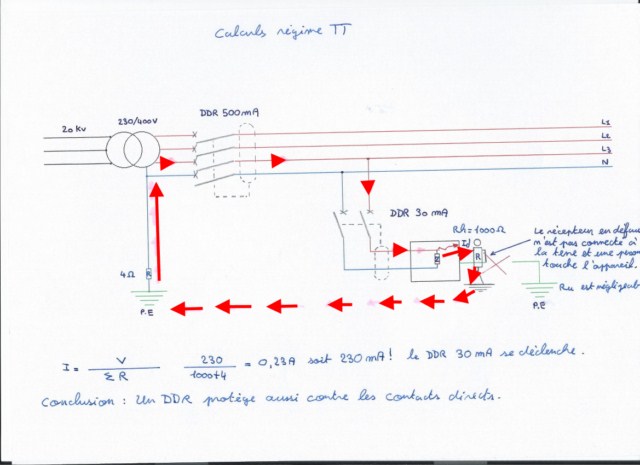 Calculs régime TT
DDR 500mA
230/400V
20 kv
L1
L2
L3
N
DDR 30 mA
Rh=1000Ω
Id
R
Le récepteur en défaut
n'est pas connecté à
la terre et une
touche l'appareil.
Ru est négligeable
4Ω
P.E
P.E
I = V / ΣR 230 / 1000+4 = 0,23A soit 230 mA! le DDR 30 mA se déclenche.
Conclusion : Un DDR protège aussi contre les contacts directs.